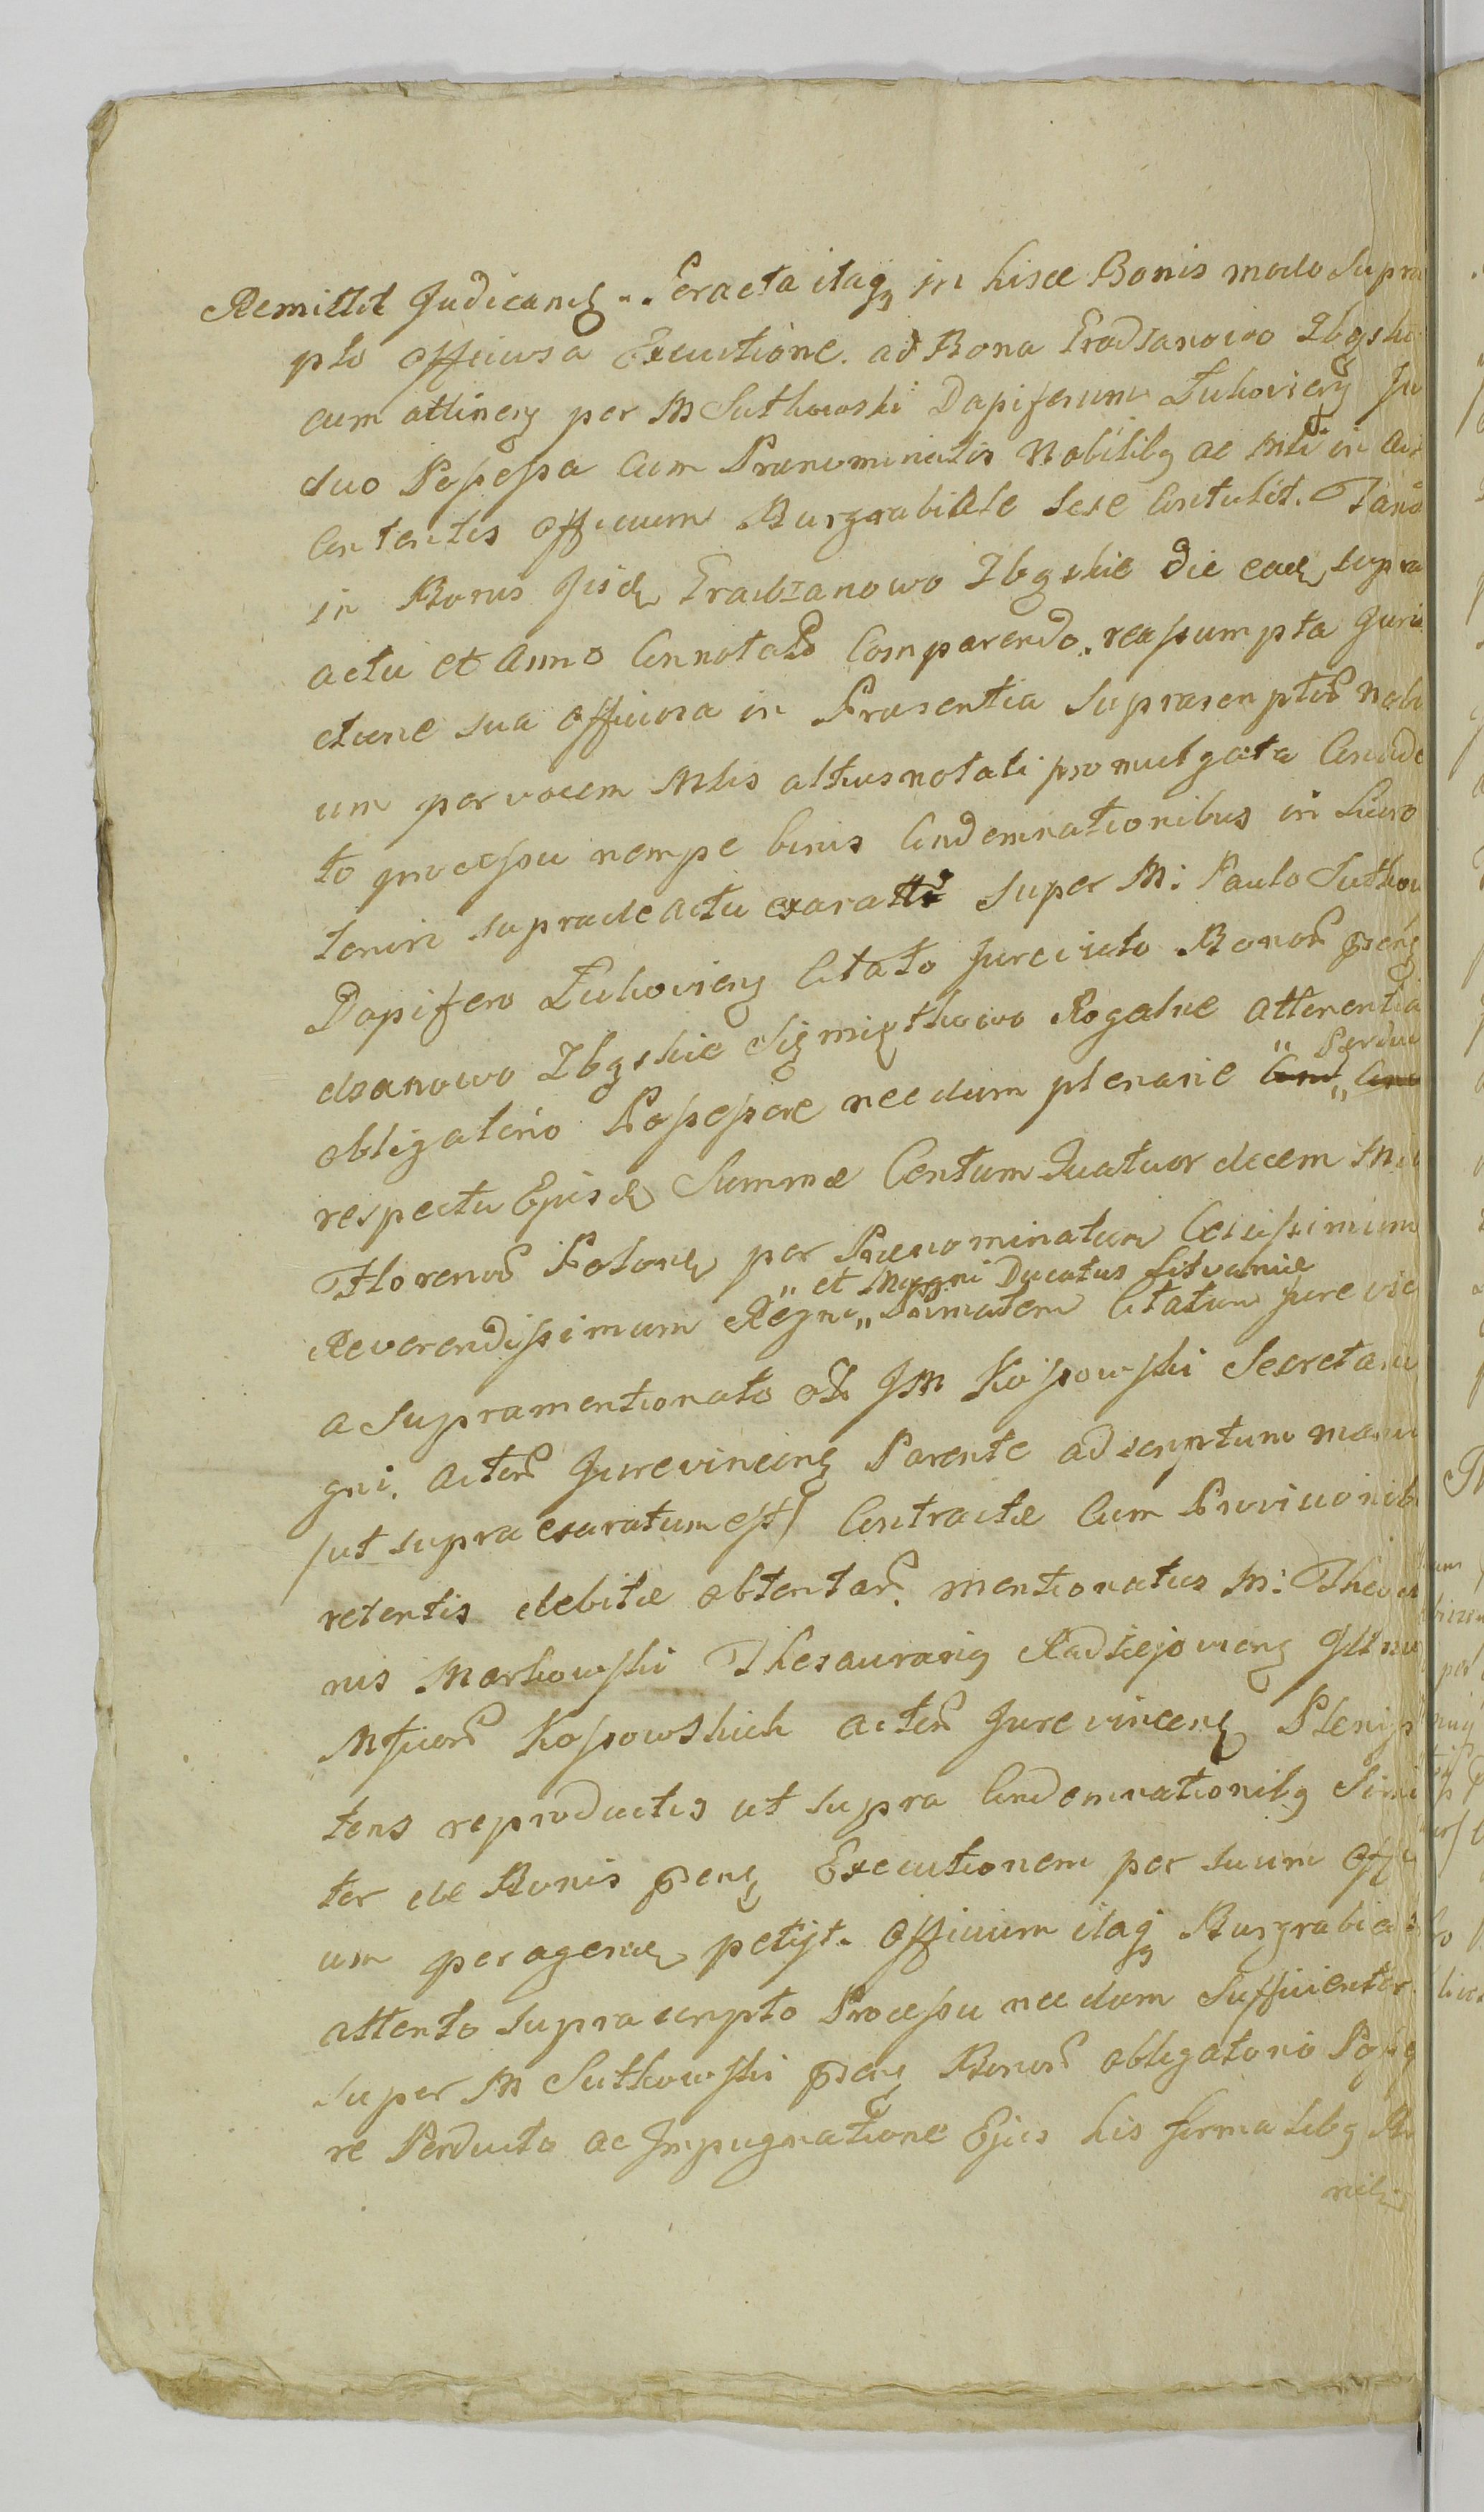 Remittit Judicand. Peracta itaq in hisce Bonis modo Supra
pto officiosa Executione. ad Bona Gradzanowo Zbęskie
cum attineng per M Sutkowski Dapiferum Łukovieng
duo Possessa cum Prænominatis Nobilibq ac Mli in
Contentis Officium Burgrabiale sese Contulit. Tand
in Bonis Jisd Gradzanowo Zbęskie die ead supra
actu et Anno Connotato Comparendo, reassumpta Juris
ctione sua officiosa in Præsentia suprascriptor Nobi
um per vocem Mlis altius notati promulgata
to processu nempe binis Condemnationibus in
supra de actu exarat Super M: Paulo Sutkow
Dapifero Łukovieng Citato Jurevicto Bonor pseng
dzanowo Zbęskie Sięmiątkowo Rogalne attinentia
" Perdu
obligatorio Possessore needum plenarie
respectu Ejusd Summæ Centum Quatuor decem Mil
Florenor Polon per Prænominatum Celsissimum
" et Magni Ducatus Litvaniæ
Reverendissimum Regni " Primatem Citatum jure vic
a supramentionato olt JM Kossowski Secretario
gni. Actor Jurevinceng Parente ad scriptum manu
/ut supra exaratum est/ Contractæ Cum Provisionib
retentis debitæ obtentar. mentionatus M: Theo
rus Markowski Thesaurarig Radziejovieng
Mficor Kossowskich actor Jurevinceng Plenip
tens reproductis ut supra Condemnationibq Simi
ter de Bonis pseng Executionem per suum offi
um peragend petijt. Officium itaq Burgrabia
attento suprascripto Processu needum Sufficienter
super M Sutkowski pseng Bonor obligatorio Posse
re Perducto ac Impugnatione Ejus his formalibq